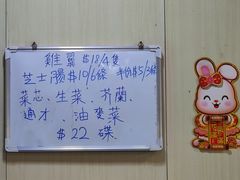 雞翼 $18/4隻
芝士腸 $10/6條 半份$5/3條
菜芯、生菜、芥蘭
通才、油麥菜
$22 碟